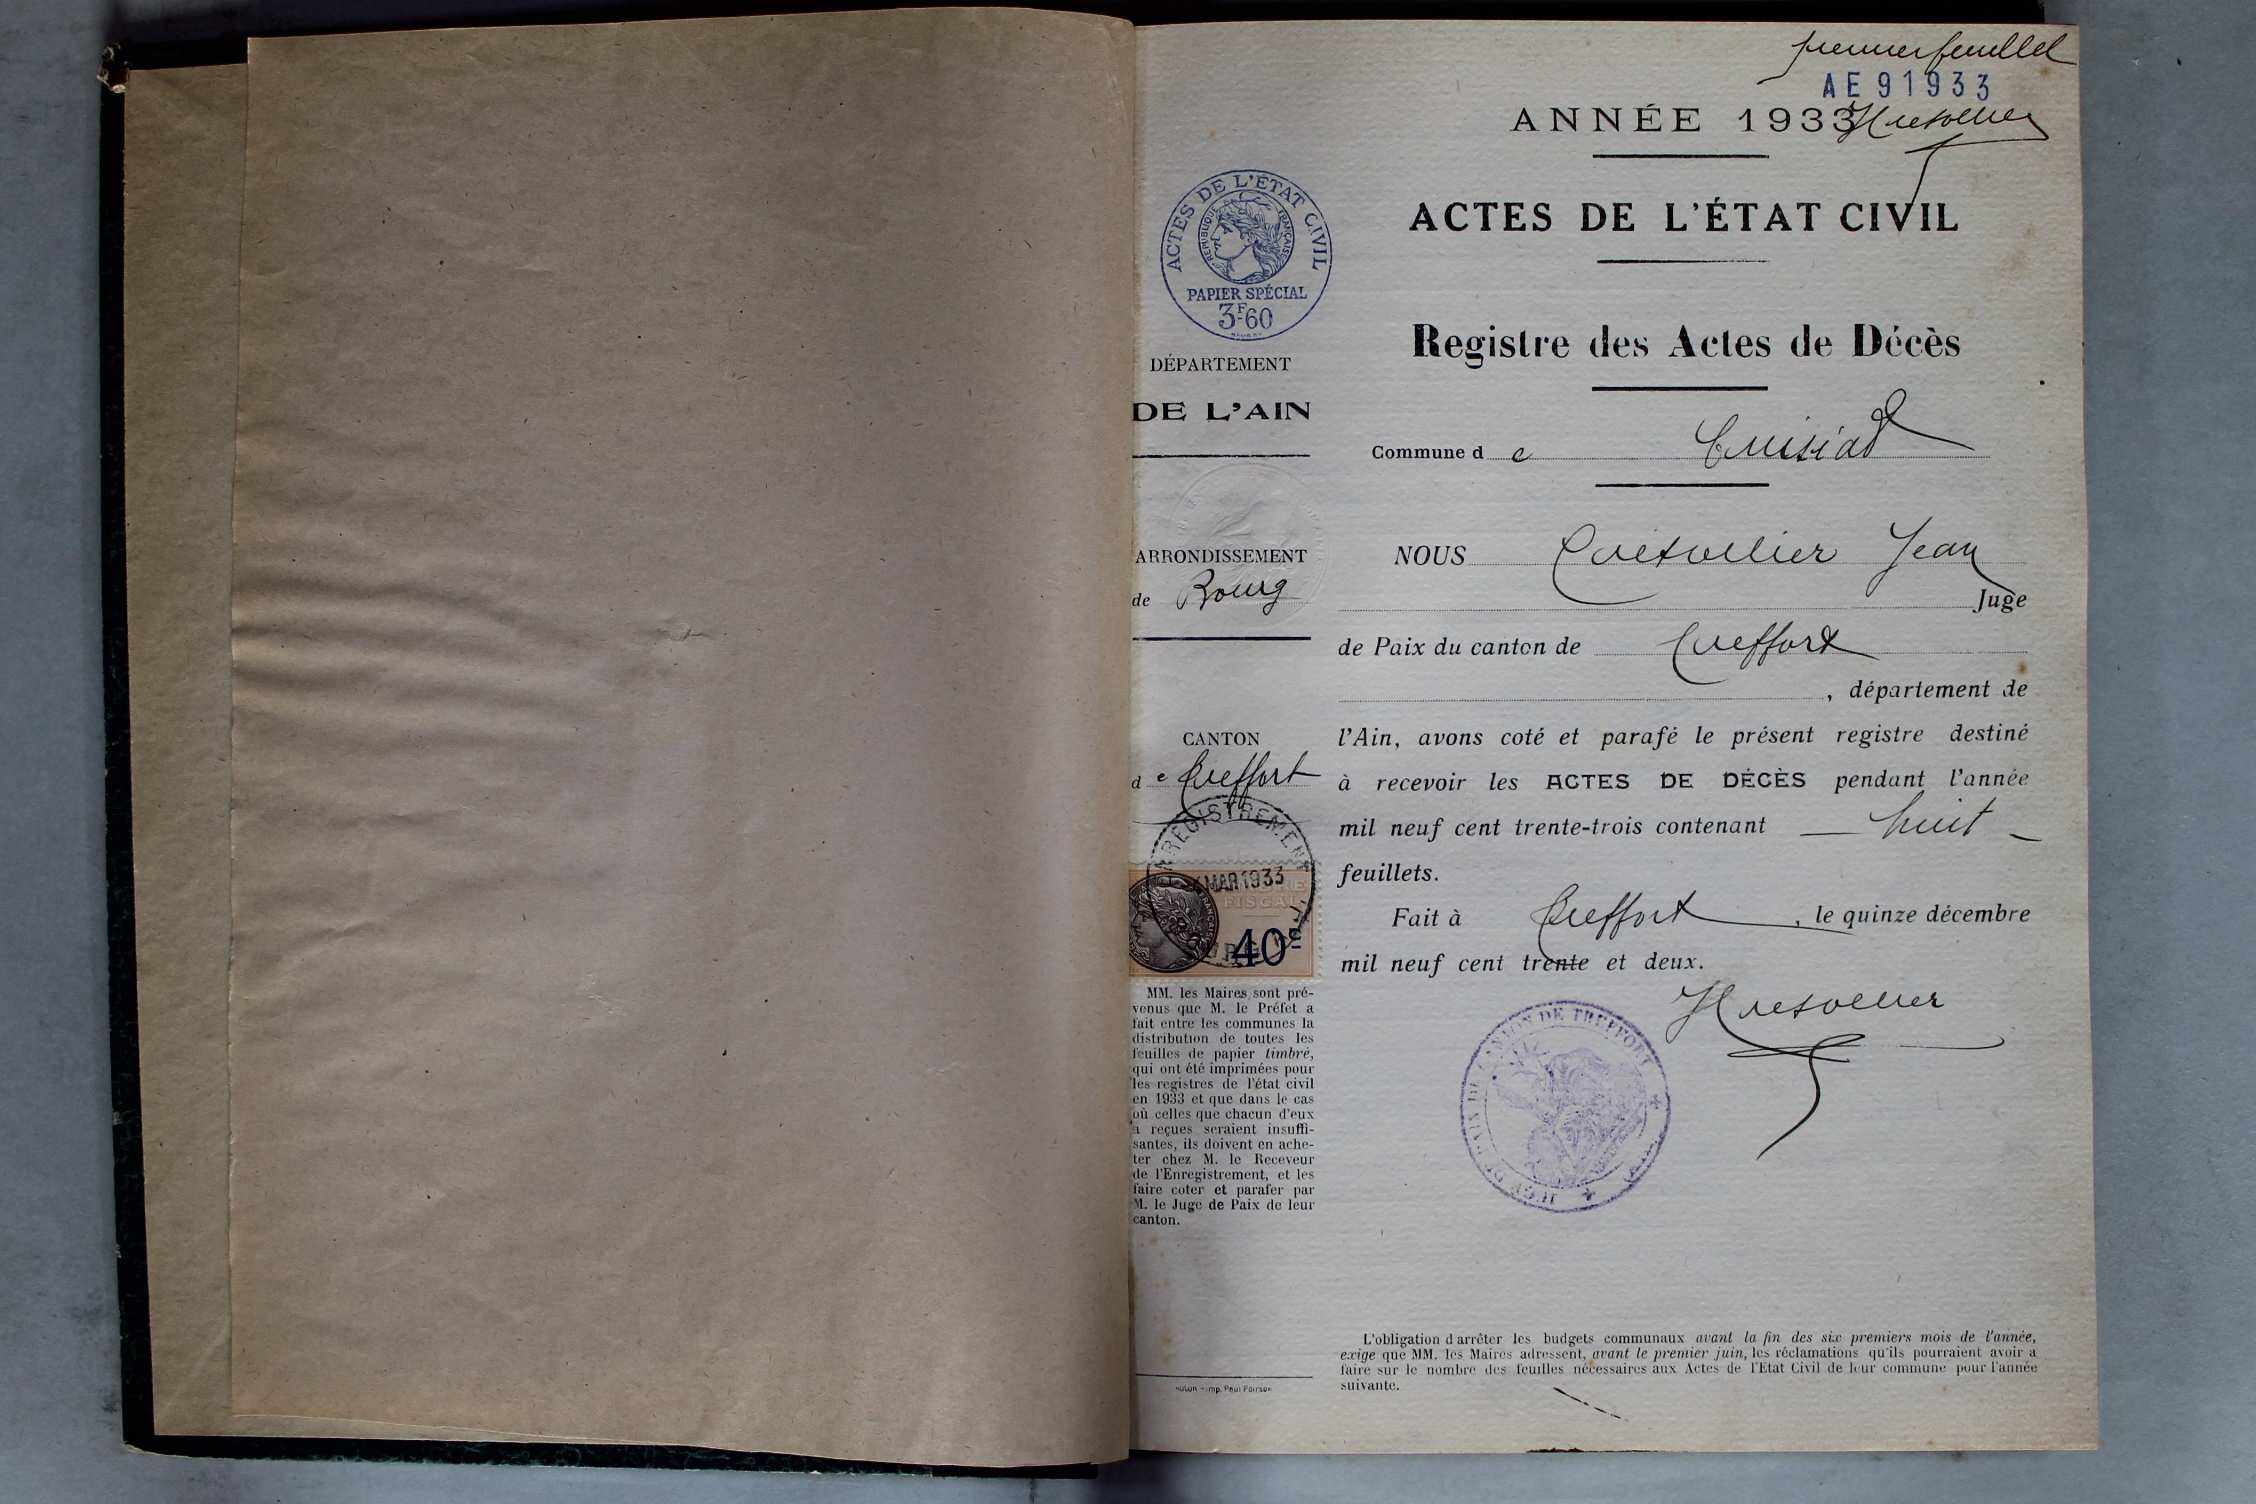 premier feuillet
AE 91933
ANNÉE 1933
ACTES DE L'ÉTAT CIVIL
Registre des Actes de Décès
Commune de Cuisiat
NOUS Jean
Juge
de Paix du canton de Treffort
, département de
l'Ain, avons coté et parafé le présent registre destiné
à recevoir les ACTES DE DÉCÈS pendant l'année
mil neuf cent trente-trois contenant — huit —
feuillets.
Fait à Treffort, le quinze décembre
mil neuf cent trente et deux.
JUGE DE PAIX DU CANTON DE TREFFORT
L'obligation d'arrêter les budgets communaux avant la fin des six premiers mois de l'année,
exige que MM. les Maires adressent, avant le premier juin, les réclamations qu'ils pourraient avoir à
faire sur le nombre des feuilles nécessaires aux Actes de l'Etat Civil de leur commune pour l'année
suivante.
ACTES DE L'ÉTAT CIVIL
RÉPUBLIQUE FRANÇAISE
PAPIER SPÉCIAL
3F60
DÉPARTEMENT
DE L'AIN
ARRONDISSEMENT
de Bourg
CANTON
de Treffort
ENREGISTREMENT
MAR 1933
FISCAL
40c
MM. les Maires sont pré-
venus que M. le Préfet a
fait entre les communes la
distribution de toutes les
feuilles de papier timbré,
qui ont été imprimées pour
les registres de l'état civil
en 1933 et que dans le cas
où celles que chacun d'eux
a reçues seraient insuffi-
santes, ils doivent en ache-
ter chez M. le Receveur
de l'Enregistrement, et les
faire coter et parafer par
M. le Juge de Paix de leur
canton.